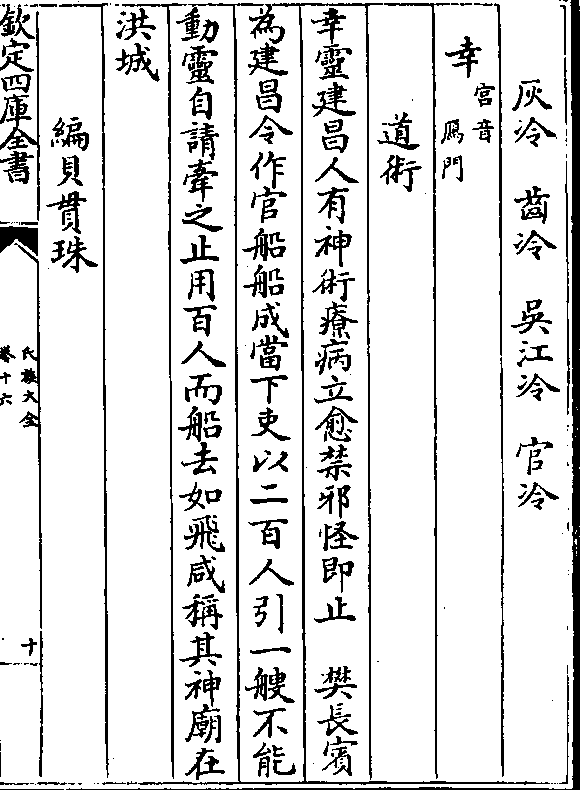 灰冷　齒冷　吳江冷　官冷
幸宮音鴈門
道術
幸靈建昌人有神術療病立愈禁邪怪即止　樊長賓
為建昌令作官船船成當下吏以二百人引一艘不能
動靈自請牽之止用百人而船去如飛咸稱其神廟在
洪城
編貝貫珠
欽定四庫全書
氏族大全
卷十六
十